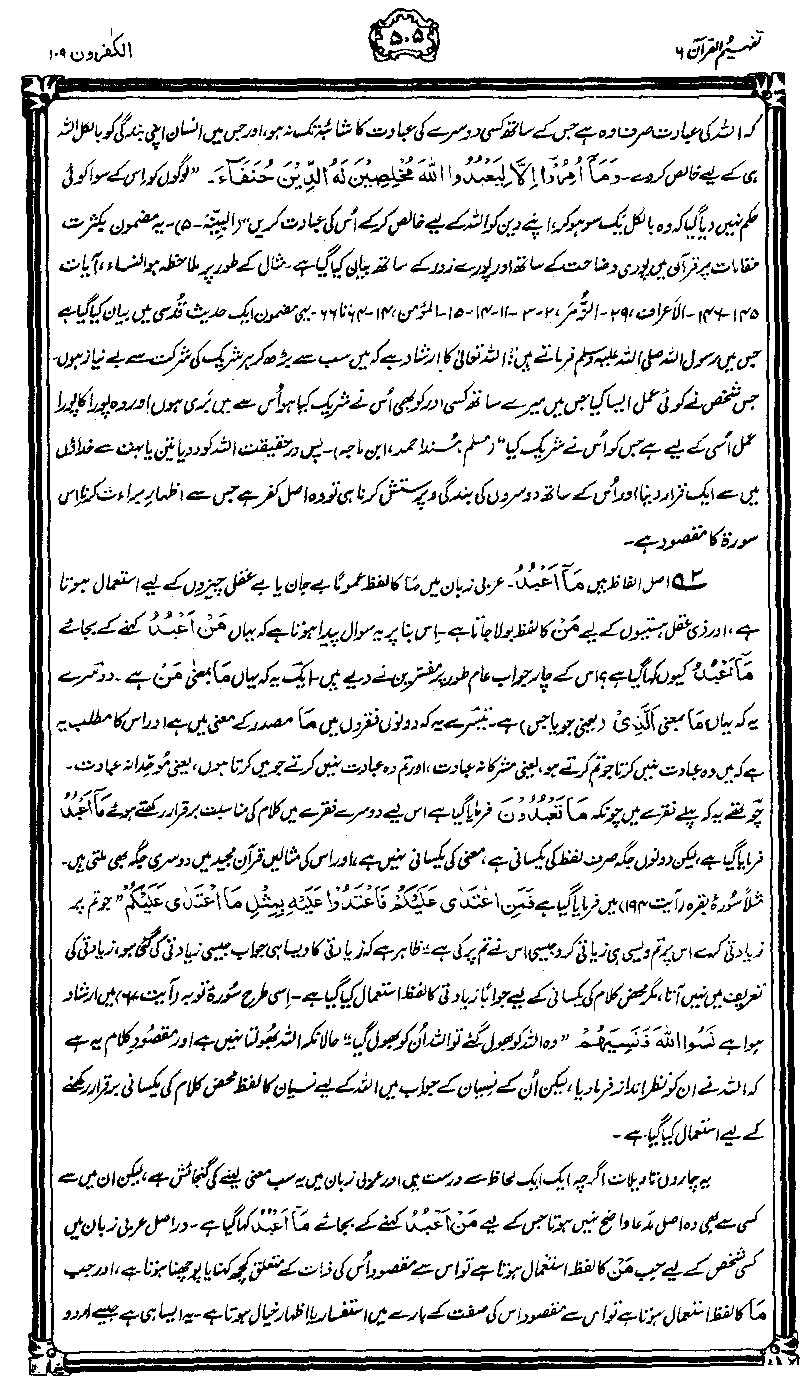 تفہیم القرآن ۶
۵۰۵
الکٰفرون ۱۰۹
کہ اللہ کی عبادت صرف وہ ہے جس کے ساتھ کسی دوسرے کی عبادت کا شائبہ تک نہ ہو، اور جس میں انسان اپنی بندگی کو بالکل اللہ
ہی کے لیے خالص کر دے۔ وَمَآ اُمِرُوْٓا اِلَّا لِيَعْبُدُوا اللّٰهَ مُخْلِصِيْنَ لَهُ الدِّيْنَ حُنَفَآءَ۔ "لوگوں کو اس کے سوا کوئی
حکم نہیں دیا گیا کہ وہ بالکل یک سو ہو کر، اپنے دین کو اللہ کے لیے خالص کر کے اُس کی عبادت کریں" (البیّنہ۔۵)۔ یہ مضمون بکثرت
مقامات پر قرآن میں پوری وضاحت کے ساتھ اور پورے زور کے ساتھ بیان کیا گیا ہے۔ مثال کے طور پر ملاحظہ ہو النساء، آیات
۱۴۵-۱۴۶۔ الاَعراف، ۲۹۔ الزُّمَر، ۲-۳-۱۱-۱۴-۱۵۔ المؤمن، ۱۴-۶۴ تا ۶۶۔ یہی مضمون ایک حدیث قُدسی میں بیان کیا گیا ہے
جس میں رسول اللہ صلی اللہ علیہ وسلم فرماتے ہیں: اللہ تعالیٰ کا ارشاد ہے کہ میں سب سے بڑھ کر ہر شریک کی شرکت سے بے نیاز ہوں۔
جس شخص نے کوئی عمل ایسا کیا جس میں میرے ساتھ کسی اور کو بھی اُس نے شریک کیا ہو اُس سے میں بَری ہوں اور وہ پورا کا پورا
عمل اُسی کے لیے ہے جس کو اُس نے شریک کیا" (مسلم، مُسند احمد، ابن ماجہ)۔ پس درحقیقت اللہ کو دو یا تین یا بہت سے خداؤں
میں سے ایک قرار دینا اور اُس کے ساتھ دوسروں کی بندگی و پرستش کرنا ہی تو وہ اصل کفر ہے جس سے اظہارِ براءت کرنا اِس
سورۃ کا مقصود ہے۔
۳ اصل الفاظ ہیں مَآ اَعْبُدُ۔ عربی زبان میں مَا کا لفظ عموماً بے جان یا بے عقل چیزوں کے لیے استعمال ہوتا
ہے، اور ذی عقل ہستیوں کے لیے مَنْ کا لفظ بولا جاتا ہے۔ اِس بنا پر یہ سوال پیدا ہوتا ہے کہ یہاں مَنْ اَعْبُدُ کہنے کے بجائے
مَآ اَعْبُدُ کیوں کہا گیا ہے؟ اس کے چار جواب عام طور پر مفسّرین نے دیے ہیں۔ ایک یہ کہ یہاں مَا بمعنی مَنْ ہے۔ دوسرے
یہ کہ یہاں مَا بمعنی اَلَّذِيْ (یعنی جو یا جس) ہے۔ تیسرے یہ کہ دونوں فقروں میں مَا مصدر کے معنی میں ہے اور اس کا مطلب یہ
ہے کہ میں وہ عبادت نہیں کرتا جو تم کرتے ہو، یعنی مشرکانہ عبادت، اور تم وہ عبادت نہیں کرتے جو میں کرتا ہوں، یعنی موحّدانہ عبادت۔
چوتھے یہ کہ پہلے فقرے میں چونکہ مَا تَعْبُدُوْنَ فرمایا گیا ہے اس لیے دوسرے فقرے میں کلام کی مناسبت برقرار رکھتے ہوئے مَآ اَعْبُدُ
فرمایا گیا ہے، لیکن دونوں جگہ صرف لفظ کی یکسانی ہے، معنی کی یکسانی نہیں ہے، اور اس کی مثالیں قرآن مجید میں دوسری جگہ بھی ملتی ہیں۔
مثلاً سُورۂ بقرہ (آیت ۱۹۴) میں فرمایا گیا ہے فَمَنِ اعْتَدٰى عَلَيْكُمْ فَاعْتَدُوْا عَلَيْهِ بِمِثْلِ مَا اعْتَدٰى عَلَيْكُمْ "جو تم پر
زیادتی کرے اس پر تم ویسی ہی زیادتی کرو جیسی اس نے تم پر کی ہے" ظاہر ہے کہ زیادتی کا ویسا ہی جواب جیسی زیادتی کی گئی ہو، زیادتی کی
تعریف میں نہیں آتا، مگر محض کلام کی یکسانی کے لیے جواباً زیادتی کا لفظ استعمال کیا گیا ہے۔ اِسی طرح سُورۂ توبہ (آیت ۶۷) میں ارشاد
ہوا ہے نَسُوا اللّٰهَ فَنَسِيَهُمْ "وہ اللہ کو بھول گئے تو اللہ اُن کو بھول گیا" حالانکہ اللہ بھولتا نہیں ہے اور مقصودِ کلام یہ ہے
کہ اللہ نے ان کو نظر انداز فرما دیا، لیکن اُن کے نسیان کے جواب میں اللہ کے لیے نسیان کا لفظ محض کلام کی یکسانی برقرار رکھنے
کے لیے استعمال کیا گیا ہے۔
یہ چاروں تاویلات اگرچہ ایک ایک لحاظ سے درست ہیں اور عربی زبان میں یہ سب معنی لینے کی گنجائش ہے، لیکن ان میں سے
کسی سے بھی وہ اصل مدعا واضح نہیں ہوتا جس کے لیے مَنْ اَعْبُدُ کہنے کے بجائے مَآ اَعْبُدُ کہا گیا ہے۔ دراصل عربی زبان میں
کسی شخص کے لیے جب مَنْ کا لفظ استعمال ہوتا ہے تو اس سے مقصود اُس کی ذات کے متعلق کچھ کہنا یا پوچھنا ہوتا ہے، اور جب
مَا کا لفظ استعمال ہوتا ہے تو اس سے مقصود اس کی صفت کے بارے میں استفسار یا اظہارِ خیال ہوتا ہے۔ یہ ایسا ہی ہے جیسے اُردو